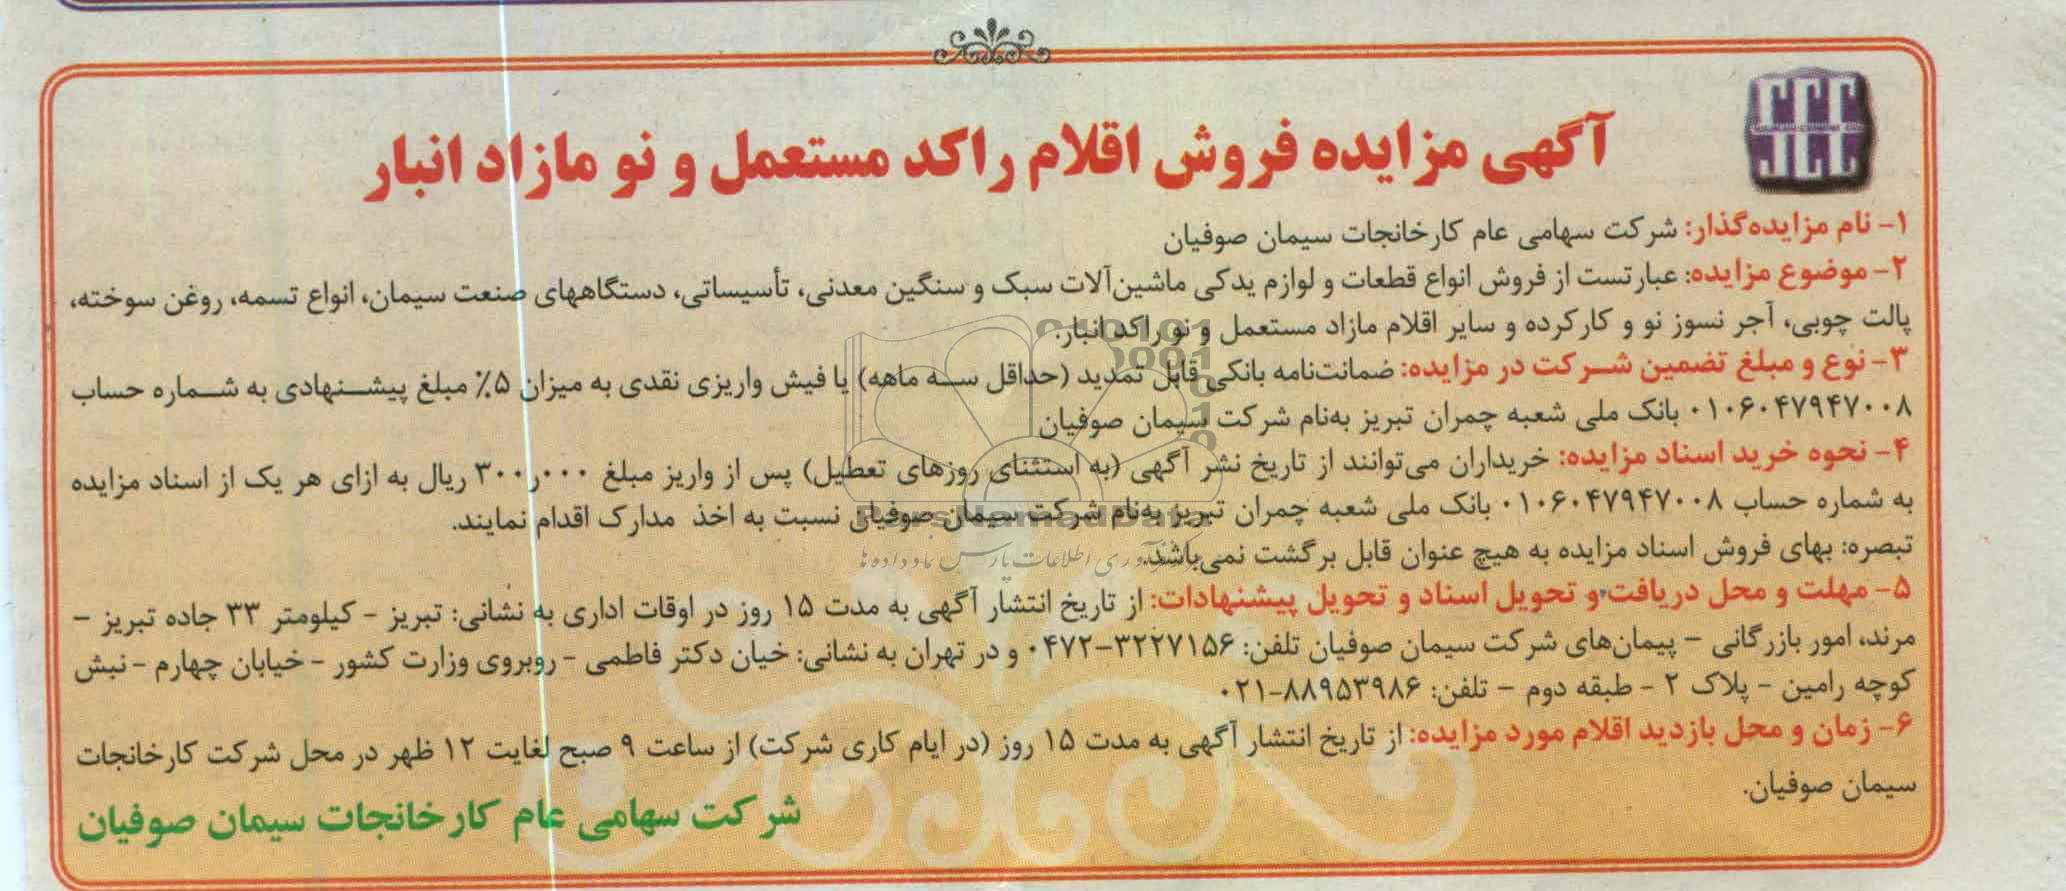 SCC
آگهی مزایده فروش اقلام راکد مستعمل و نو مازاد انبار
۱- نام مزایده‌گذار: شرکت سهامی عام کارخانجات سیمان صوفیان
۲- موضوع مزایده: عبارتست از فروش انواع قطعات و لوازم یدکی ماشین‌آلات سبک و سنگین معدنی، تأسیساتی، دستگاههای صنعت سیمان، انواع تسمه، روغن سوخته،
پالت چوبی، آجر نسوز نو و کارکرده و سایر اقلام مازاد مستعمل و نو راکد انبار.
۳- نوع و مبلغ تضمین شرکت در مزایده: ضمانت‌نامه بانکی قابل تمدید (حداقل سه ماهه) یا فیش واریزی نقدی به میزان ۵٪ مبلغ پیشنهادی به شماره حساب
۰۱۰۶۰۴۷۹۴۷۰۰۸ بانک ملی شعبه چمران تبریز به‌نام شرکت سیمان صوفیان
۴- نحوه خرید اسناد مزایده: خریداران می‌توانند از تاریخ نشر آگهی (به استثنای روزهای تعطیل) پس از واریز مبلغ ۳۰۰ر۰۰۰ ریال به ازای هر یک از اسناد مزایده
به شماره حساب ۰۱۰۶۰۴۷۹۴۷۰۰۸ بانک ملی شعبه چمران تبریز به‌نام شرکت سیمان صوفیان نسبت به اخذ مدارک اقدام نمایند.
تبصره: بهای فروش اسناد مزایده به هیچ عنوان قابل برگشت نمی‌باشد.
۵- مهلت و محل دریافت و تحویل اسناد و تحویل پیشنهادات: از تاریخ انتشار آگهی به مدت ۱۵ روز در اوقات اداری به نشانی: تبریز - کیلومتر ۳۳ جاده تبریز –
مرند، امور بازرگانی – پیمان‌های شرکت سیمان صوفیان تلفن: ۳۲۲۷۱۵۶-۰۴۷۲ و در تهران به نشانی: خیان دکتر فاطمی - روبروی وزارت کشور - خیابان چهارم - نبش
کوچه رامین - پلاک ۲ - طبقه دوم – تلفن: ۸۸۹۵۳۹۸۶-۰۲۱
۶- زمان و محل بازدید اقلام مورد مزایده: از تاریخ انتشار آگهی به مدت ۱۵ روز (در ایام کاری شرکت) از ساعت ۹ صبح لغایت ۱۲ ظهر در محل شرکت کارخانجات
سیمان صوفیان.
شرکت سهامی عام کارخانجات سیمان صوفیان